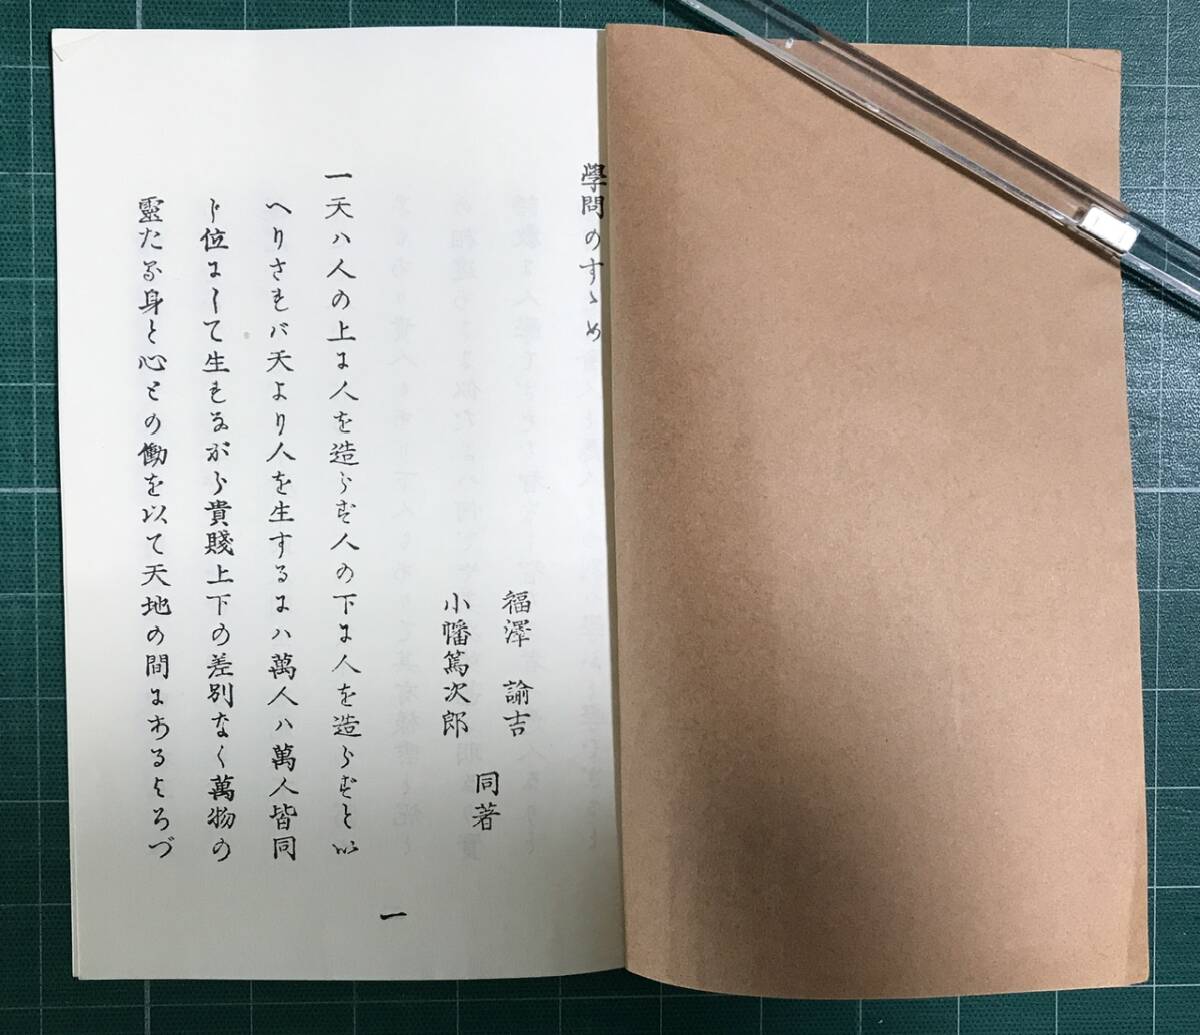 學問のすゝめ
福澤 諭吉
小幡篤次郎
同著
一天ハ人の上に人を造らず人の下に人を造らずとい
へりされバ天より人を生するにハ萬人ハ萬人皆同
じ位にして生れながら貴賤上下の差別なく萬物の
靈たる身と心との働を以て天地の間にあるよろづ
一